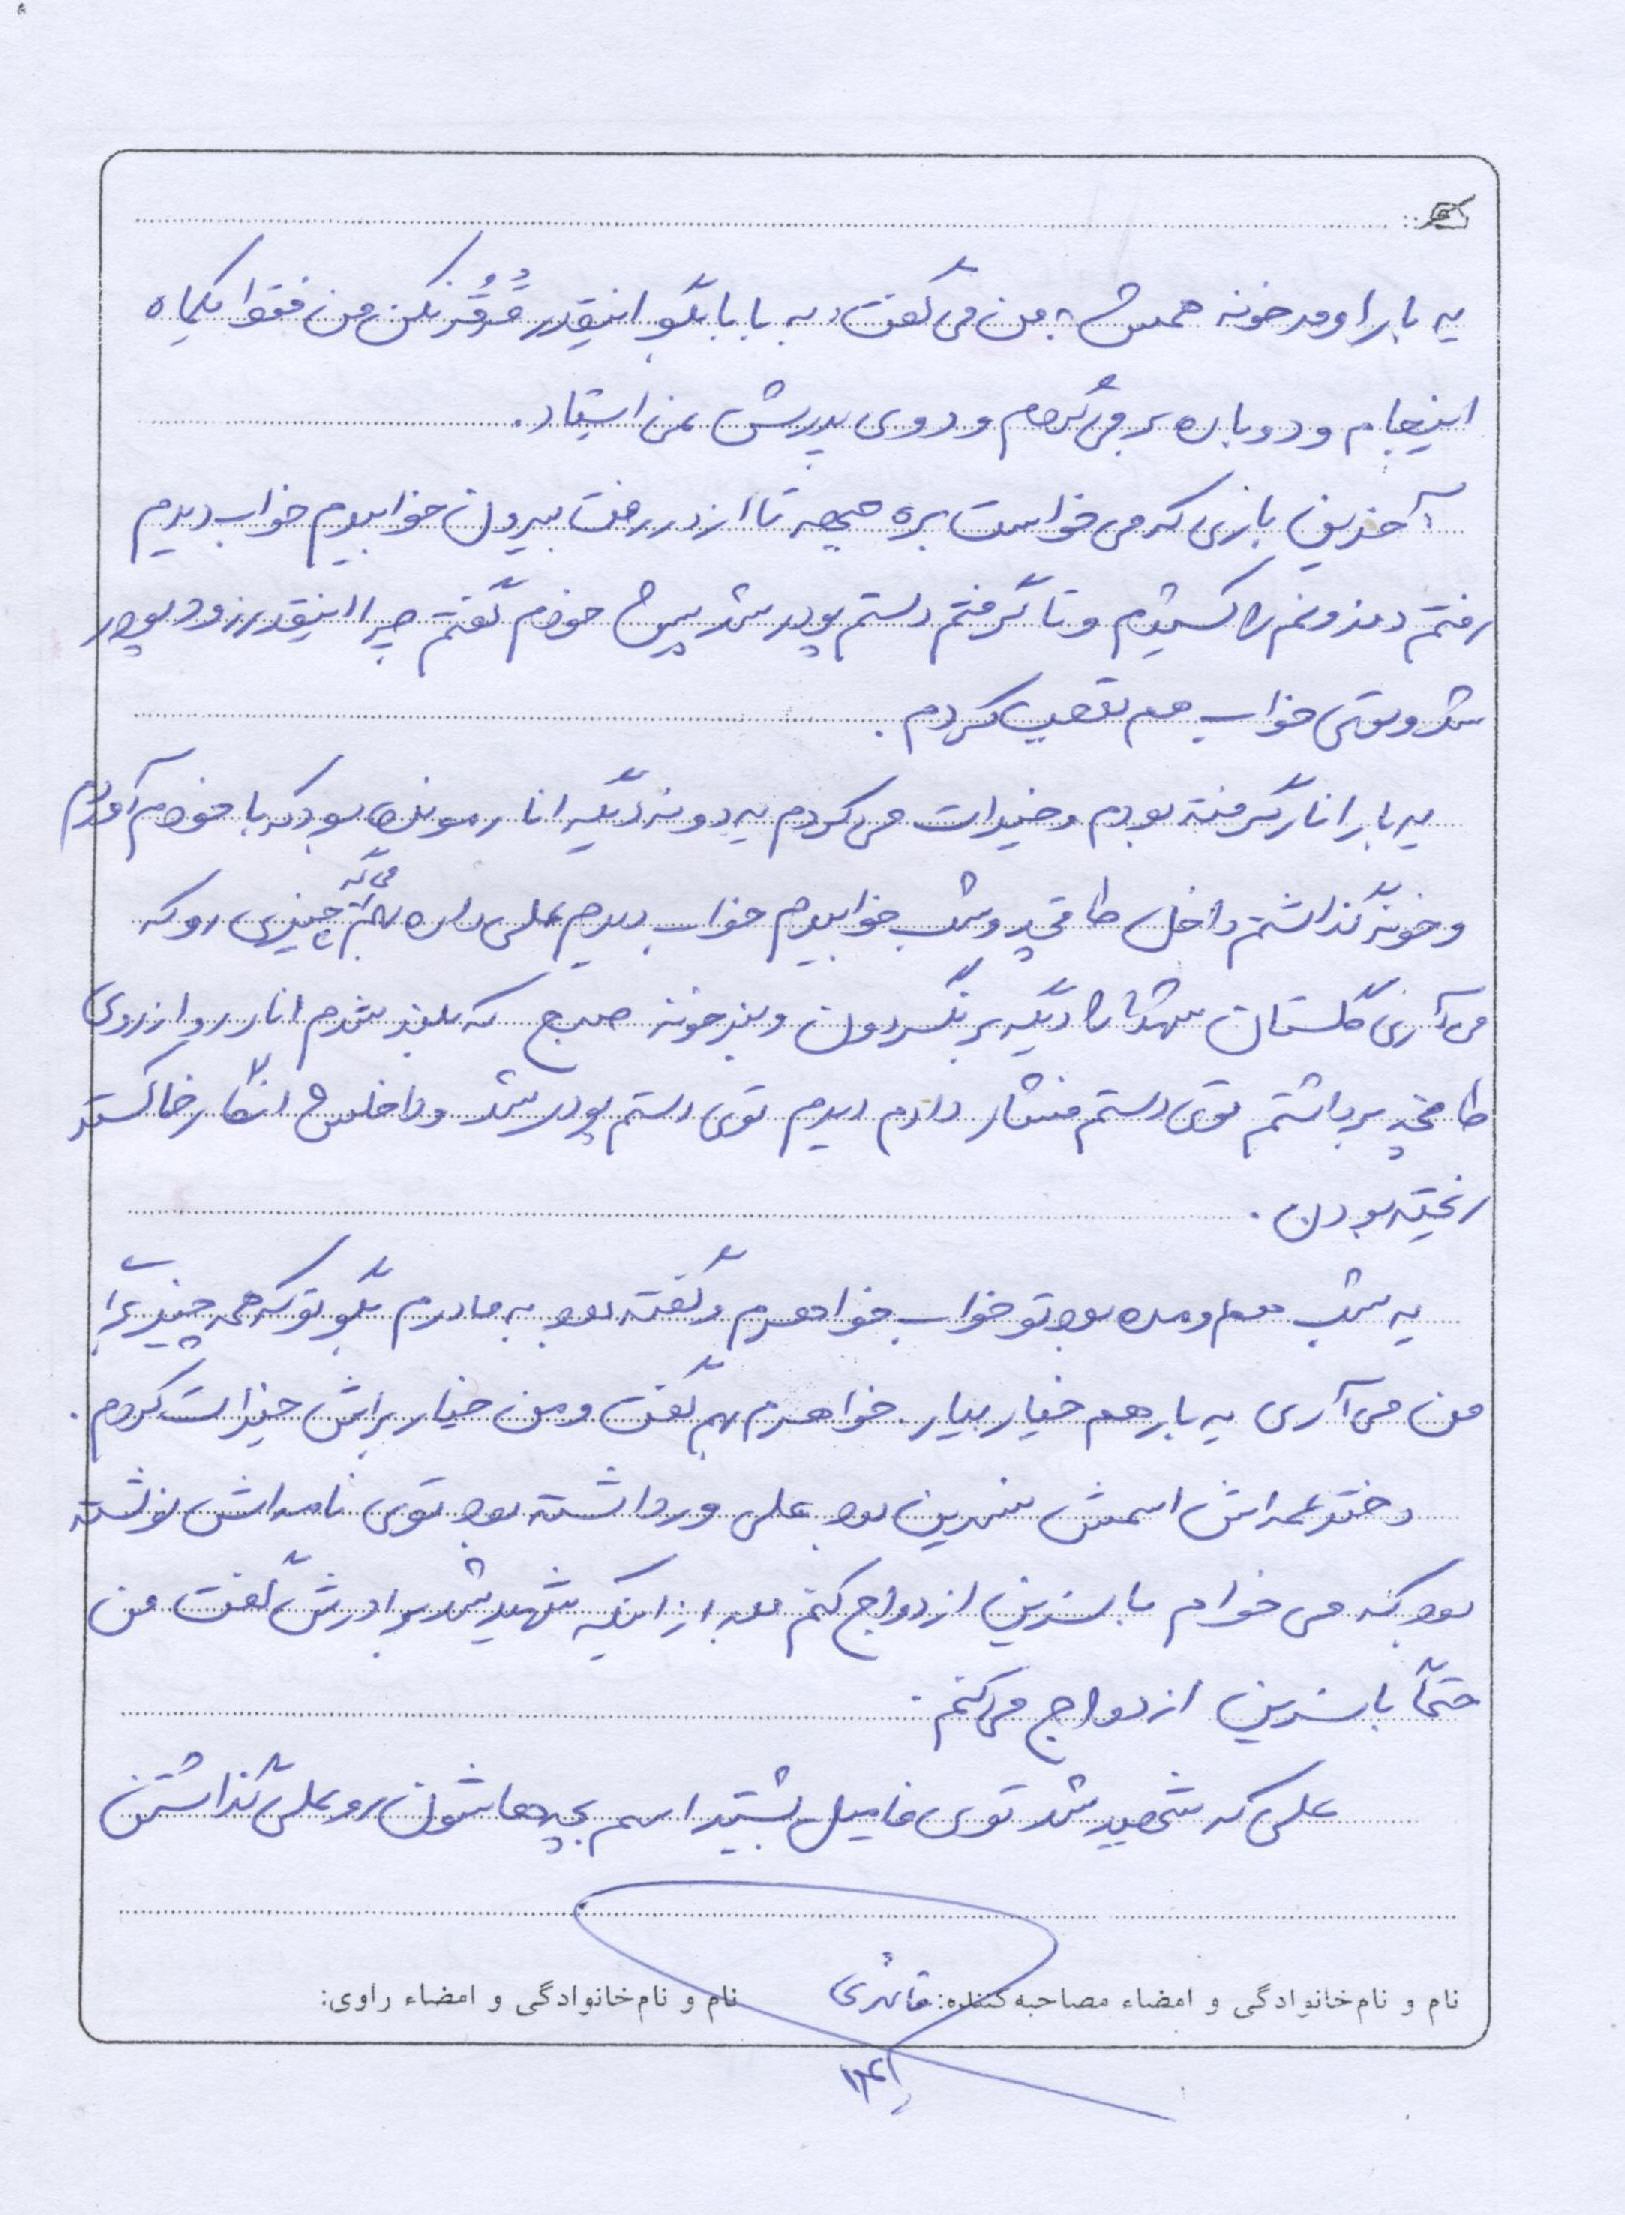 یه بار اومد خونه همش به من می‌گفت: به بابا بگو اینقدر قُرقُر نکن من فقط یکماه
اینجام و دوباره بر می‌گردم و روی پدرش نمی‌ایستاد.
آخرین باری که می‌خواست بره جبهه تا از در رفت بیرون خوابیدم خواب دیدم
رفتم دندونم را کشیدم و تا گرفتم دستم پودر شد پیش خودم گفتم چرا اینقدر زود پودر
شد و توی خواب هم تعجب کردم.
یه بار انار گرفته بودم و خیرات می‌کردم یه دونه دیگه انار مونده بود که با خودم آوردم
و خونه گذاشتم داخل طاقچه و شب خوابیدم خواب دیدم علی داره بهم می‌گه چیزی رو که
می‌آری گلستان شهدا را دیگه برنگردون و نبر خونه صبح که بلند شدم انار رو از روی
طاقچه برداشتم توی دستم فشار دادم دیدم توی دستم پودر شد و داخلش انگار خاکستر
ریخته بودن.
یه شب هم اومده بود تو خواب خواهرم و گفته بود به مادرم بگو تو که همه چیز برا
من می‌آری یه بار هم خیار بیار. خواهرم بهم گفت و من خیار براش خیرات کردم.
دختر عمه‌اش اسمش نسرین بود علی ورداشته بود توی نامه‌اش نوشته
بود که می‌خوام با نسرین ازدواج کنم بعد از اینکه شهید شد برادرش گفت من
حتماً با نسرین ازدواج می‌کنم.
علی که شهید شد توی فامیل بیشتر اسم بچه‌هاشون رو علی گذاشتن
نام و نام‌خانوادگی و امضاء مصاحبه‌کننده: نام و نام‌خانوادگی و امضاء راوی: